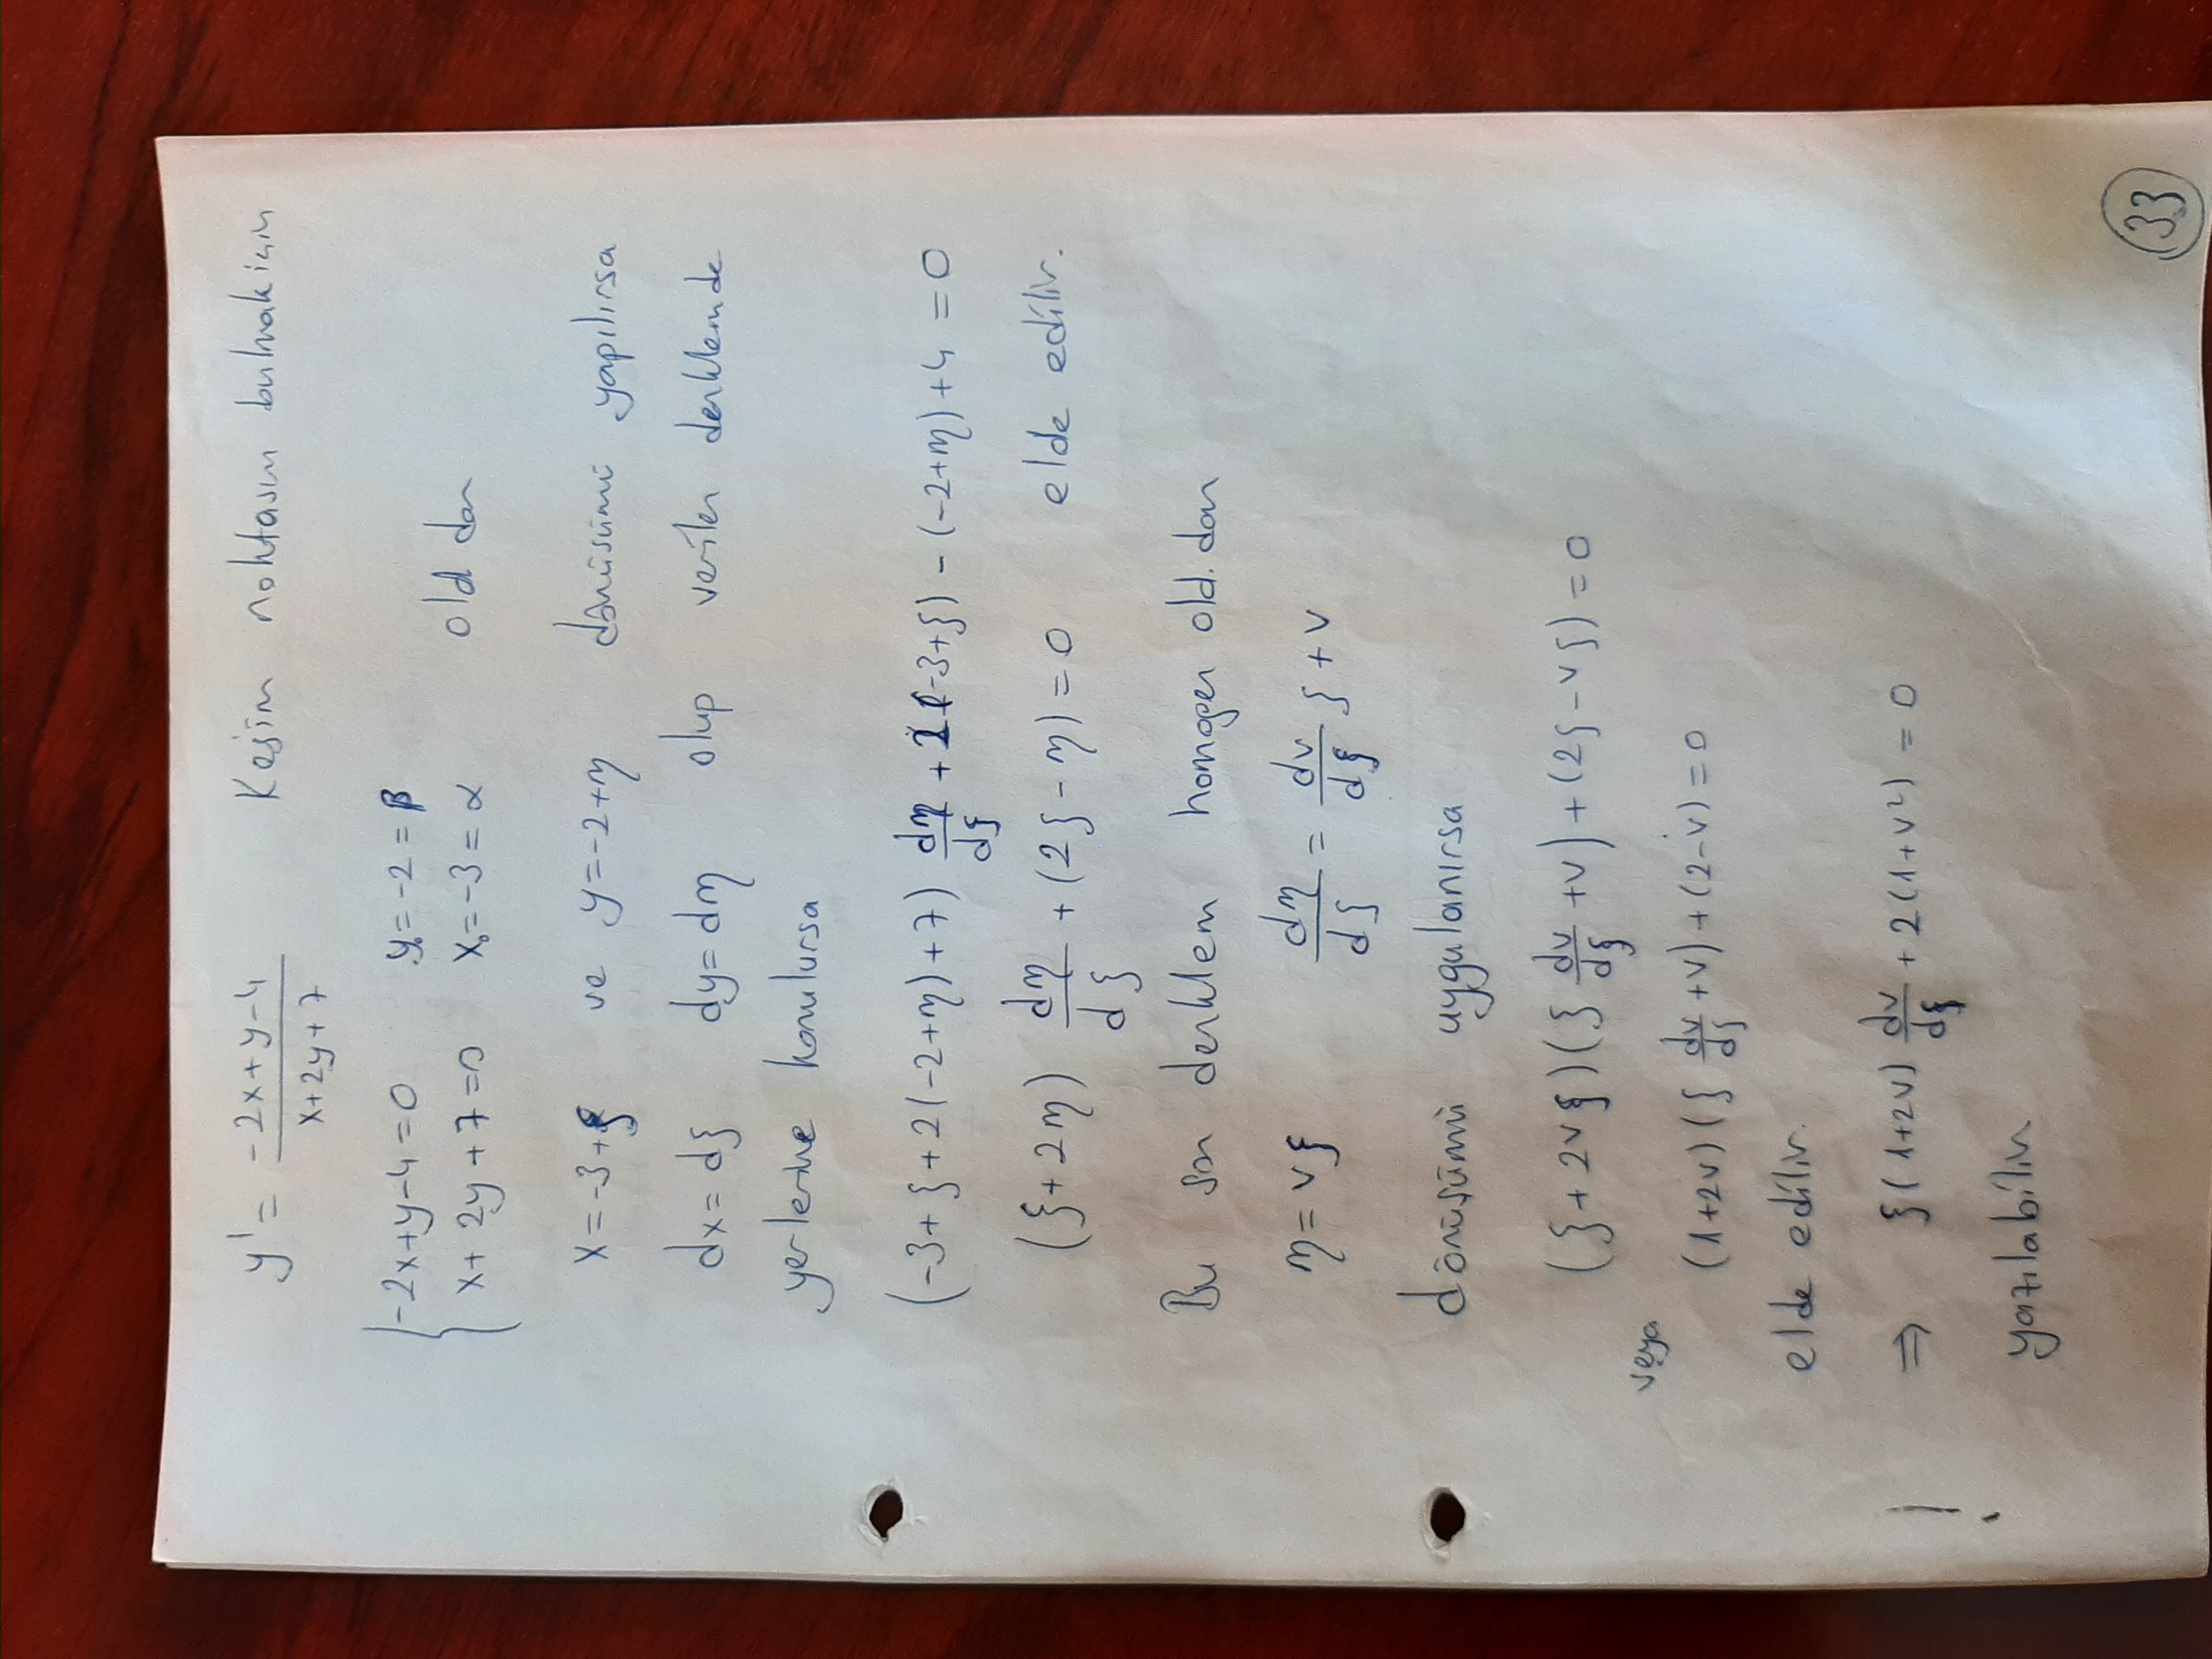 y' = (-2x+y-4)/(x+2y+7) Kesim noktasını bulmak için
{ -2x+y-4=0 y₀=-2=β
x+2y+7=0 x₀=-3=α old dan
x=-3+ξ ve y=-2+η dönüşümü yapılırsa
dx=dξ dy=dη olup verilen denklemde
yerlerine konulursa
(-3+ξ+2(-2+η)+7) dη/dξ + 2(-3+ξ) - (-2+η)+4 = 0
(ξ+2η) dη/dξ + (2ξ-η) = 0 elde edilir.
Bu son denklem homogen old. dan
η=vξ dη/dξ = dv/dξ ξ + v
dönüşümü uygulanırsa
(ξ+2vξ)(ξ dv/dξ +v)+(2ξ-vξ)=0
veya
(1+2v)(ξ dv/dξ +v)+(2-v)=0
elde edilir.
⇒ ξ(1+2v) dv/dξ + 2(1+v²) = 0
!
yazılabilir
33